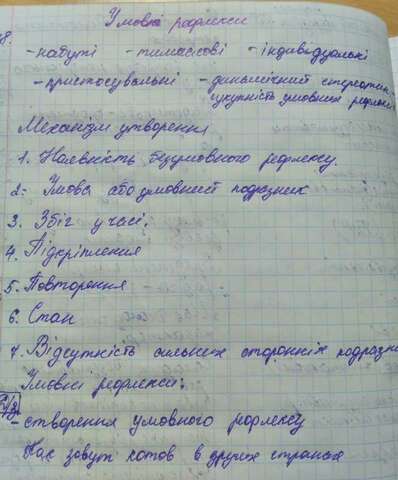 Умовні рефлекси
8.
- набуті - тимчасові - індивідуальні
- пристосувальні - динамічний стереотип
сукупність умовних рефлексів
Механізм утворення
1. Наявність безумовного рефлексу.
2. Умова або умовний подразник
3. Збіг у часі;
4. Підкріплення
5. Повторення
6. Стан
7. Відсутність сильних сторонніх подразн
Умовні рефлекси:
- створення умовного рефлексу
Как зовут котов в других странах